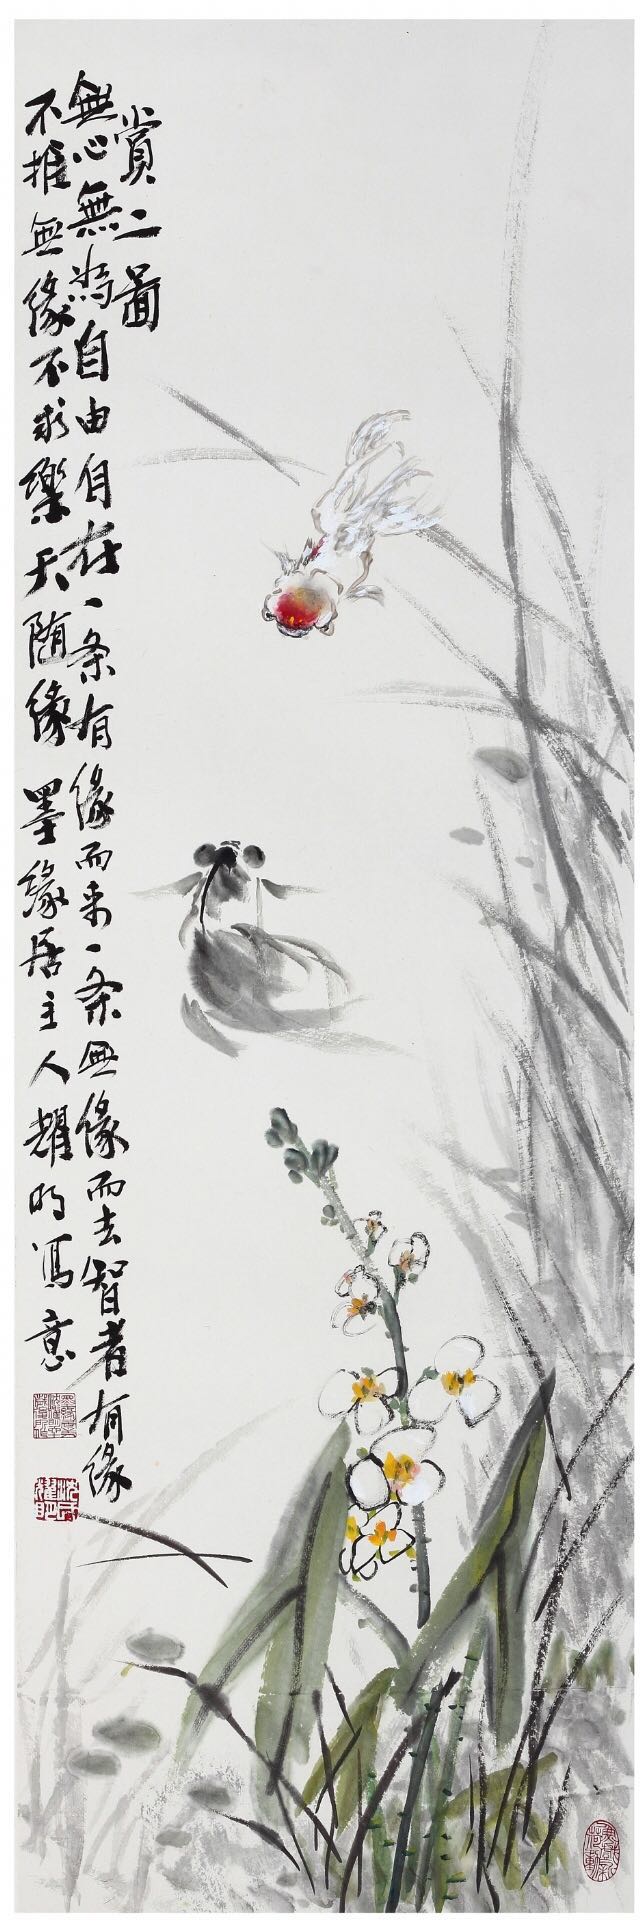 賞二圖
無心無為自由自在一条有緣而来一条無緣而去智者有緣
不推無緣不求樂天随緣 墨緣居主人耀明寫意